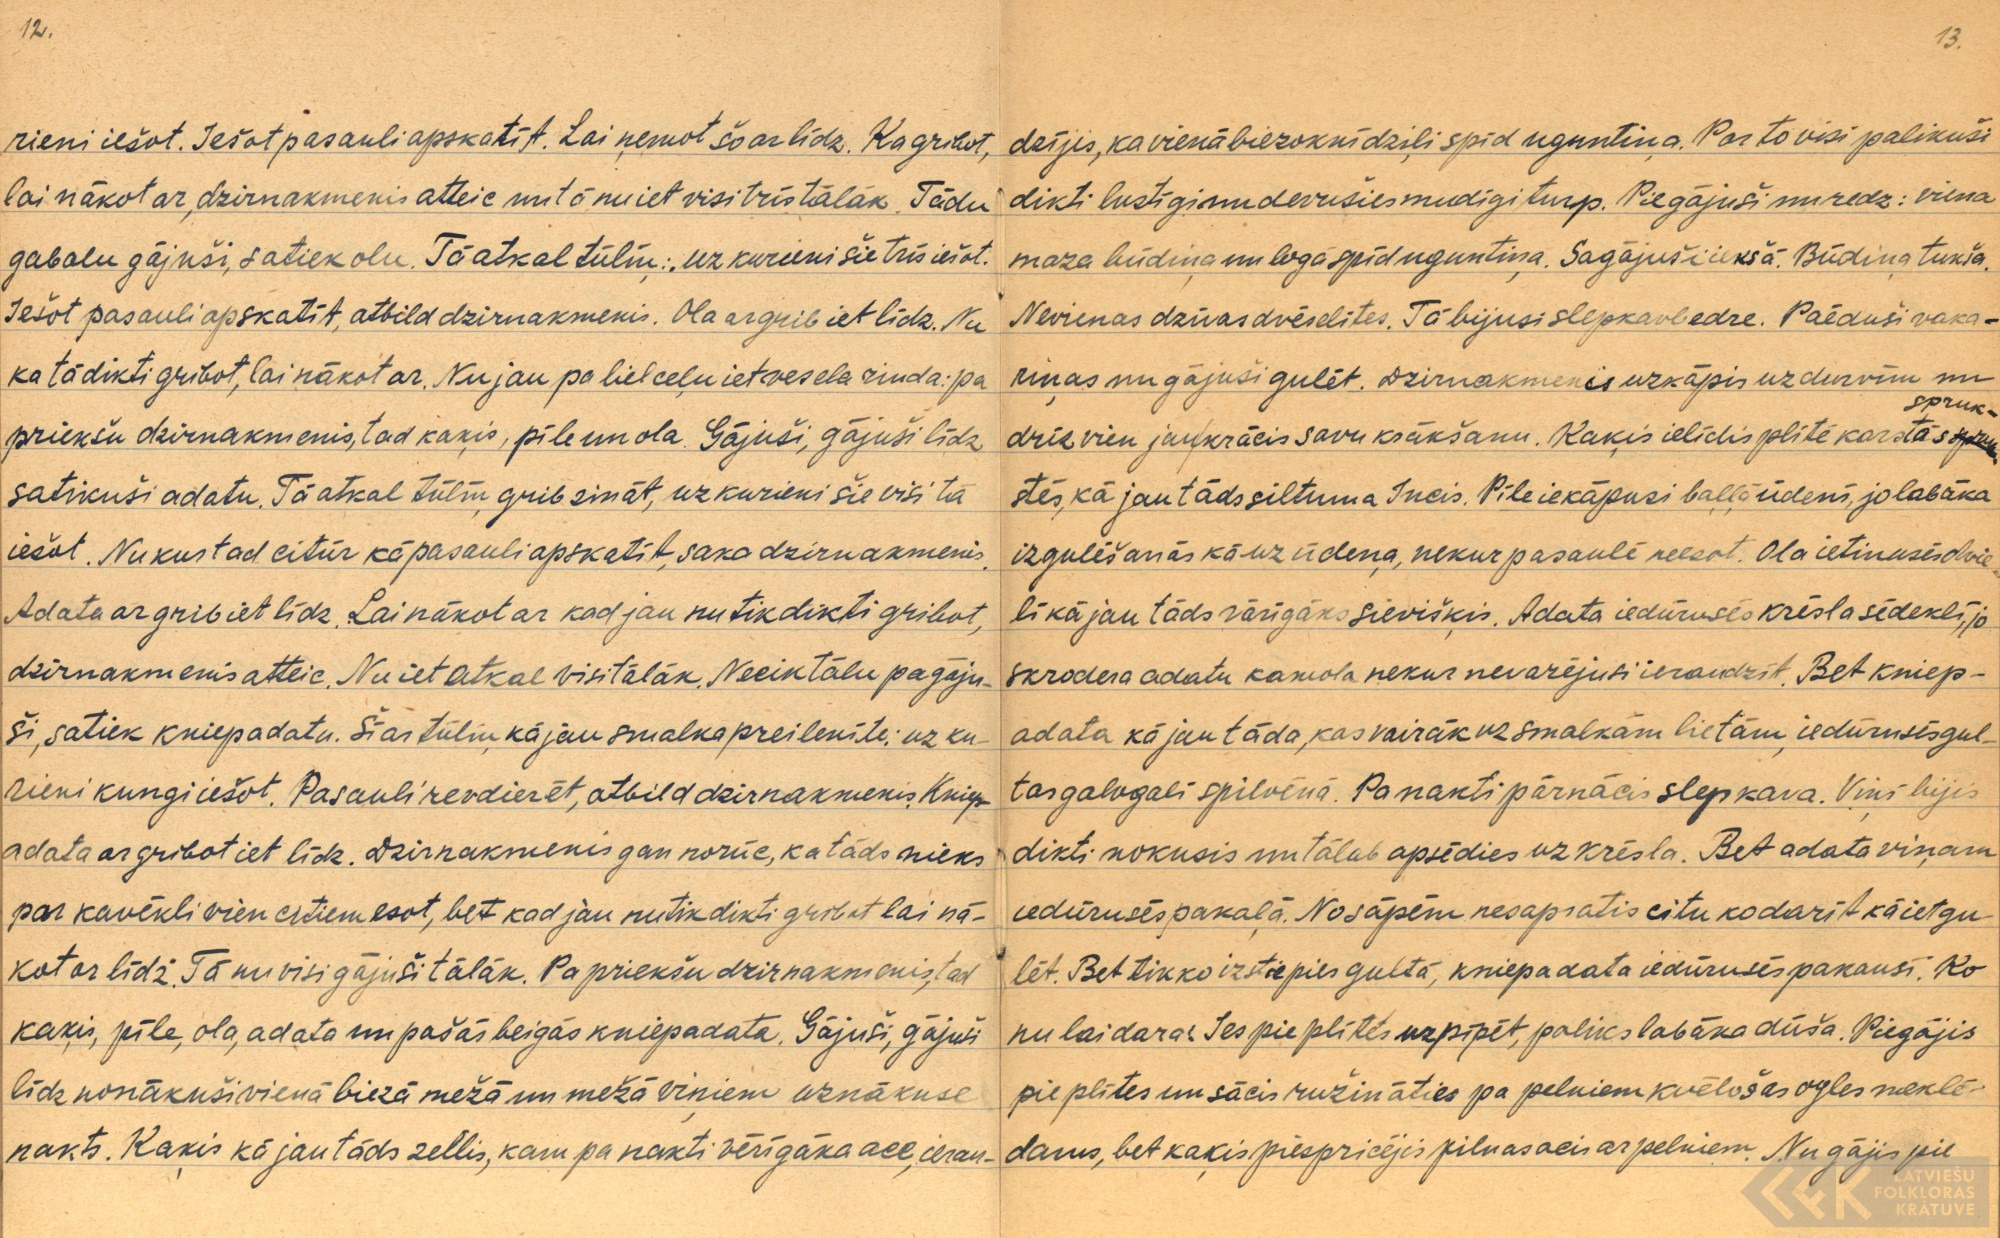 12.
rieni iešot. Iešot pasauli apskatīt. Lai ņemot šo ar līdz. Ka gribot,
lai nākot ar, dzirnakmenis atteic un tā nu iet visi trīs tālāk. Tādu
gabalu gājuši, satiek olu. Tā atkal tūlīņ: uz kurieni šie trīs iešot.
Iešot pasauli apskatīt, atbild dzirnakmenis. Ola ar grib iet līdz. Nu
ka tā dikti gribot, lai nākot ar. Nu jau pa lielceļu iet vesela rinda: pa
priekšu dzirnakmenis, tad kaķis, pīle un ola. Gājuši, gājuši līdz
satikuši adatu. Tā atkal tūlīņ grib zināt, uz kurieni šie visi tā
iešot. Nu kus tad citūr kā pasauli apskatīt, saka dzirnakmenis.
Adata ar grib iet līdz. Lai nākot ar kad jau nu tik dikti gribot,
dzirnakmenis atteic. Nu iet atkal visi tālāk. Necik tālu pagāju-
ši, satiek kniepadatu. Šī ar tūlīņ kā jau smalka preilenīte: uz ku-
rieni kungi iešot. Pasauli revdierēt, atbild dzirnakmenis. Kniep-
adata ar gribot iet līdz. Dzirnakmenis gan norūc, ka tāds nieks
par kavēkli vien citiem esot, bet kad jau nu tik dikti gribot lai nā-
kot ar līdz. Tā nu visi gājuši tālāk. Pa priekšu dzirnakmenis, tad
kaķis, pīle, ola, adata un pašās beigās kniepadata. Gājuši, gājuši
līdz nonākuši vienā biezā mežā un mežā viņiem uznākuse
nakts. Kaķis kā jau tāds zellis, kam pa nakti vērīgāka ace, ieran-
13.
dzījis, ka vienā biezoknī dziļi spīd uguntiņa. Par to visi palikuši
dikti lustīgi un devušies mudīgi turp. Piegājuši un redz: viena
maza būdiņa un logā spīd uguntiņa. Sagājuši iekšā. Būdiņa tukša.
Nevienas dzīvas dvēselītes. Tā bijusi slepkavbedre. Paēduši vaka-
riņas un gājuši gulēt. Dzirnakmenis uzkāpis uz durvīm un
spruk-
drīz vien jau krācis savu ksākšanu. Kaķis ielīdis plītē karstās
stēs, kā jau tāds siltuma Incis. Pīle iekāpusi baļļā ūdenī, jo labāka
izgulēšanās kā uz ūdeņa, nekur pasaulē neesot. Ola ietinusēs dvie-
lī kā jau tāds vārīgāks sieviškis. Adata iedūrusēs krēsla sēdeklī, jo
skrodera adatu kamola nekur nevarējusi ieraudzīt. Bet kniep-
adata kā jau tāda, kas vairāk uz smalkām lietām, iedūrusēs gul-
tas galvgalī spilvēnā. Pa nakti pārnācis slepkava. Viņš bijis
dikti nokusis un tālab apsēdies uz krēsla. Bet adata viņam
iedūrusēs pakaļā. No sāpēm nesapratis citu ko darīt kā iet gu-
lēt. Bet tikko izstiepies gultā, kniepadata iedūrusēs pakausī. Ko
nu lai dara? Ies pie plītes uzpīpēt, paliks labāka dūša. Piegājis
pie plītes un sācis ružināties pa pelniem kvēlošas ogles meklē-
dams, bet kaķis piespricējis pilnas acis ar pelniem. Nu gājis pie
LATVIEŠU
FOLKLORAS
KRĀTUVE